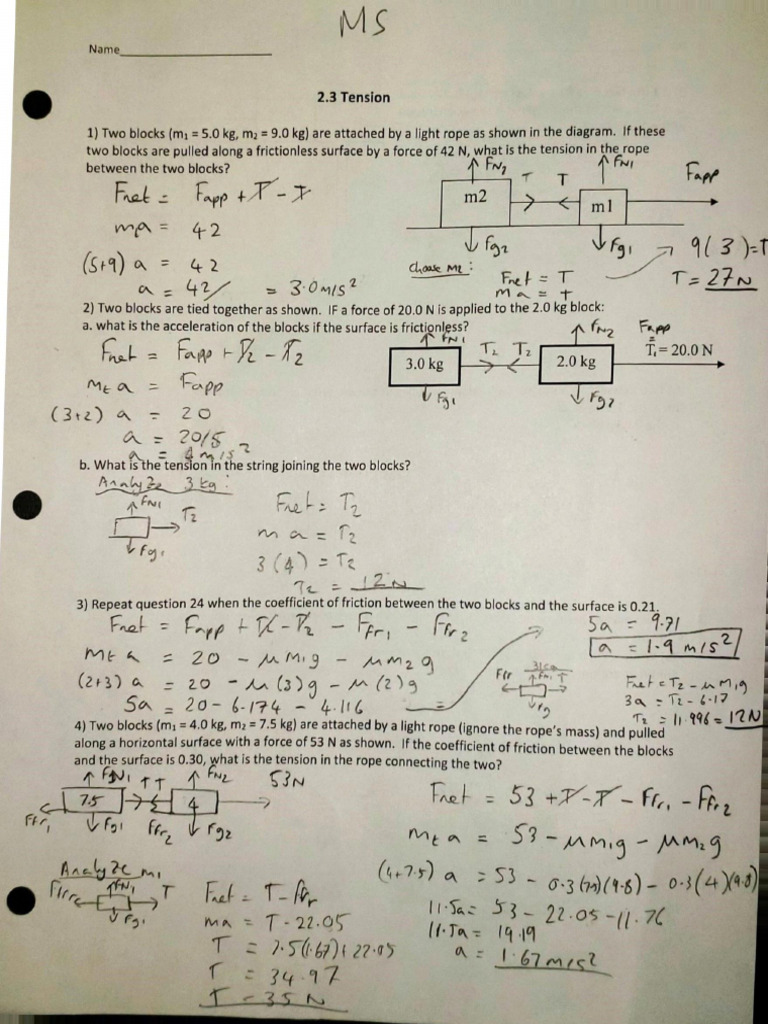 MS
Name
2.3 Tension
1) Two blocks (m₁ = 5.0 kg, m₂ = 9.0 kg) are attached by a light rope as shown in the diagram. If these
two blocks are pulled along a frictionless surface by a force of 42 N, what is the tension in the rope
between the two blocks?
Fnet = Fapp + T - T
ma = 42
(5+9) a = 42
a = 42/ = 3.0 m/s²
FN2 T T FN1 Fapp
m2 m1
Fg2 Fg1
9(3) = T
T = 27 N
choose M2:
Fnet = T
ma = t
2) Two blocks are tied together as shown. IF a force of 20.0 N is applied to the 2.0 kg block:
a. what is the acceleration of the blocks if the surface is frictionless?
Fnet = Fapp + T2 - T2
Mt a = Fapp
(3+2) a = 20
a = 20/5
a = 4 m/s²
FN1 T2 T2 FN2 Fapp
=
3.0 kg 2.0 kg T₁ = 20.0 N
Fg1 Fg2
b. What is the tension in the string joining the two blocks?
Analyze 3 kg:
FN1
T2
Fg1
Fnet = T2
ma = T2
3(4) = T2
T2 = 12 N
3) Repeat question 24 when the coefficient of friction between the two blocks and the surface is 0.21.
Fnet = Fapp + T2 - T2 - Ffr1 - Ffr2
Mt a = 20 - μm1g - μm2g
(2+3) a = 20 - μ(3)g - μ(2)g
5a = 20 - 6.174 - 4.116
5a = 9.71
a = 1.9 m/s²
3kg
Ffr FN1 T
Fg
Fnet = T2 - μm1g
3a = T2 - 6.17
T2 = 11.996 = 12N
4) Two blocks (m₁ = 4.0 kg, m₂ = 7.5 kg) are attached by a light rope (ignore the rope's mass) and pulled
along a horizontal surface with a force of 53 N as shown. If the coefficient of friction between the blocks
and the surface is 0.30, what is the tension in the rope connecting the two?
FN1 T T FN2 53N
7.5 4
Ffr1 Fg1 Ffr2 Fg2
Fnet = 53 + T - T - Ffr1 - Ffr2
Mt a = 53 - μm1g - μm2g
(4+7.5) a = 53 - 0.3(7.5)(9.8) - 0.3(4)(9.8)
11.5a = 53 - 22.05 - 11.76
11.5a = 19.19
a = 1.67 m/s²
Analyze m1
FN1 T
Fg1
Fnet = T - Ffr
ma = T - 22.05
T = 7.5(1.67) + 22.05
T = 34.97
T = 35 N